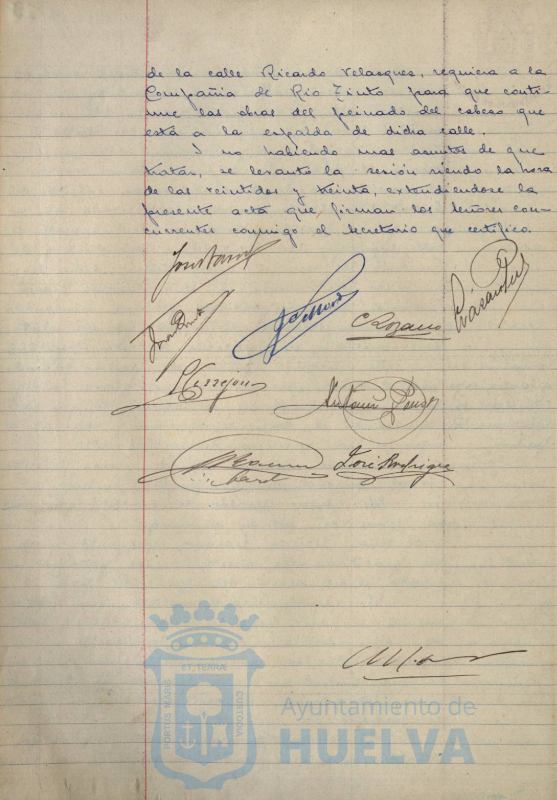 de la calle Ricardo Velasques, requiera a la
Compañia de Rio Tinto para que conti-
nue las obras del peinado del cabeso que
esta a la espalda de dicha calle.
I no habiendo mas asuntos de que
tratar, se levanto la sesión siendo la hora
de las veintidos y treinta, extendiendose la
presente acta que firman los señores con-
currentes conmigo el secretario que certifico.
C Rozano
Antonio
José Rodrigue
ET TERRÆ
PORTUS MARIS
CUSTODIA
Ayuntamiento de
HUELVA